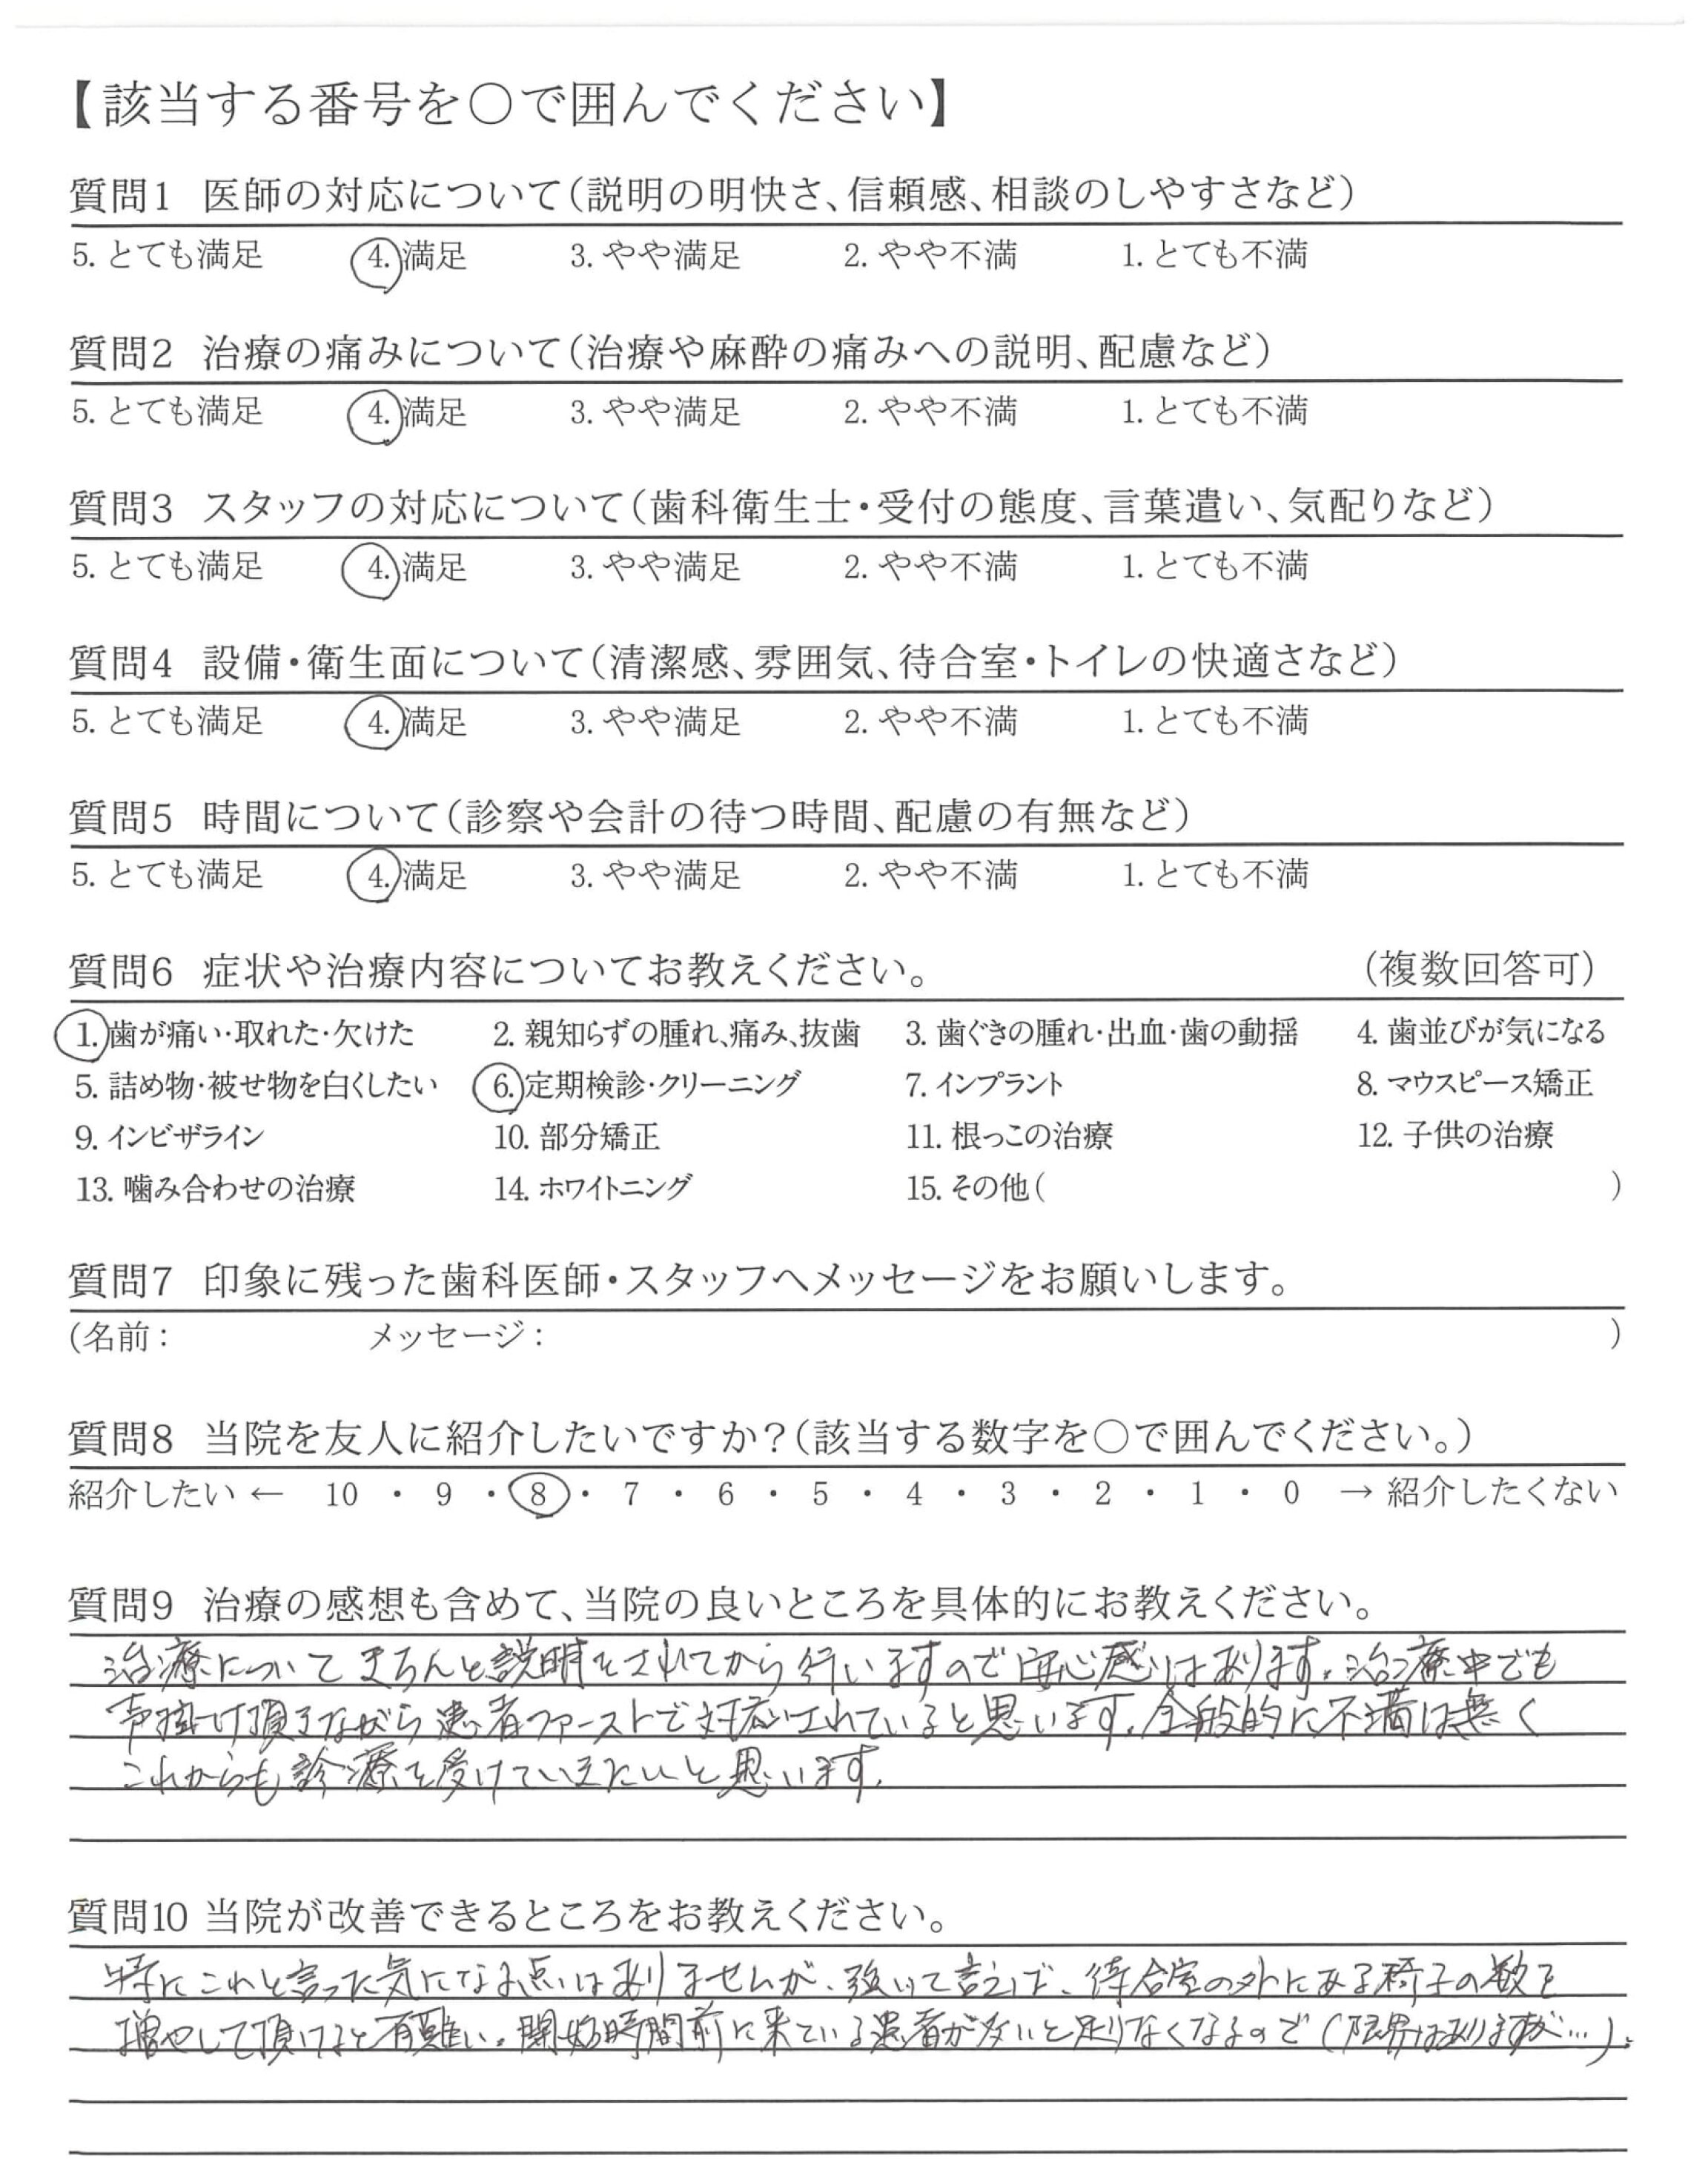 【該当する番号を○で囲んでください】
質問1 医師の対応について(説明の明快さ、信頼感、相談のしやすさなど)
5. とても満足 4. 満足 3. やや満足 2. やや不満 1. とても不満
質問2 治療の痛みについて(治療や麻酔の痛みへの説明、配慮など)
5. とても満足 4. 満足 3. やや満足 2. やや不満 1. とても不満
質問3 スタッフの対応について(歯科衛生士・受付の態度、言葉遣い、気配りなど)
5. とても満足 4. 満足 3. やや満足 2. やや不満 1. とても不満
質問4 設備・衛生面について(清潔感、雰囲気、待合室・トイレの快適さなど)
5. とても満足 4. 満足 3. やや満足 2. やや不満 1. とても不満
質問5 時間について(診察や会計の待つ時間、配慮の有無など)
5. とても満足 4. 満足 3. やや満足 2. やや不満 1. とても不満
質問6 症状や治療内容についてお教えください。 (複数回答可)
1. 歯が痛い・取れた・欠けた 2. 親知らずの腫れ、痛み、抜歯 3. 歯ぐきの腫れ・出血・歯の動揺 4. 歯並びが気になる
5. 詰め物・被せ物を白くしたい 6. 定期検診・クリーニング 7. インプラント 8. マウスピース矯正
9. インビザライン 10. 部分矯正 11. 根っこの治療 12. 子供の治療
13. 噛み合わせの治療 14. ホワイトニング 15. その他( )
質問7 印象に残った歯科医師・スタッフへメッセージをお願いします。
(名前: メッセージ: )
質問8 当院を友人に紹介したいですか?(該当する数字を○で囲んでください。)
紹介したい ← 10 ・ 9 ・ 8 ・ 7 ・ 6 ・ 5 ・ 4 ・ 3 ・ 2 ・ 1 ・ 0 → 紹介したくない
質問9 治療の感想も含めて、当院の良いところを具体的にお教えください。
治療についてきちんと説明をされてから行いますので安心感はあります。治療中でも
声掛け頂きながら患者ファーストで対応されていると思います。全般的に不満は無く
これからも診療を受けていきたいと思います。
質問10 当院が改善できるところをお教えください。
特にこれと言った気になる点はありませんが、強いて言えば、待合室の外にある椅子の数を
増やして頂けると有難い。開始時間前に来ている患者が多いと足りなくなるので(限界はありますが…)。